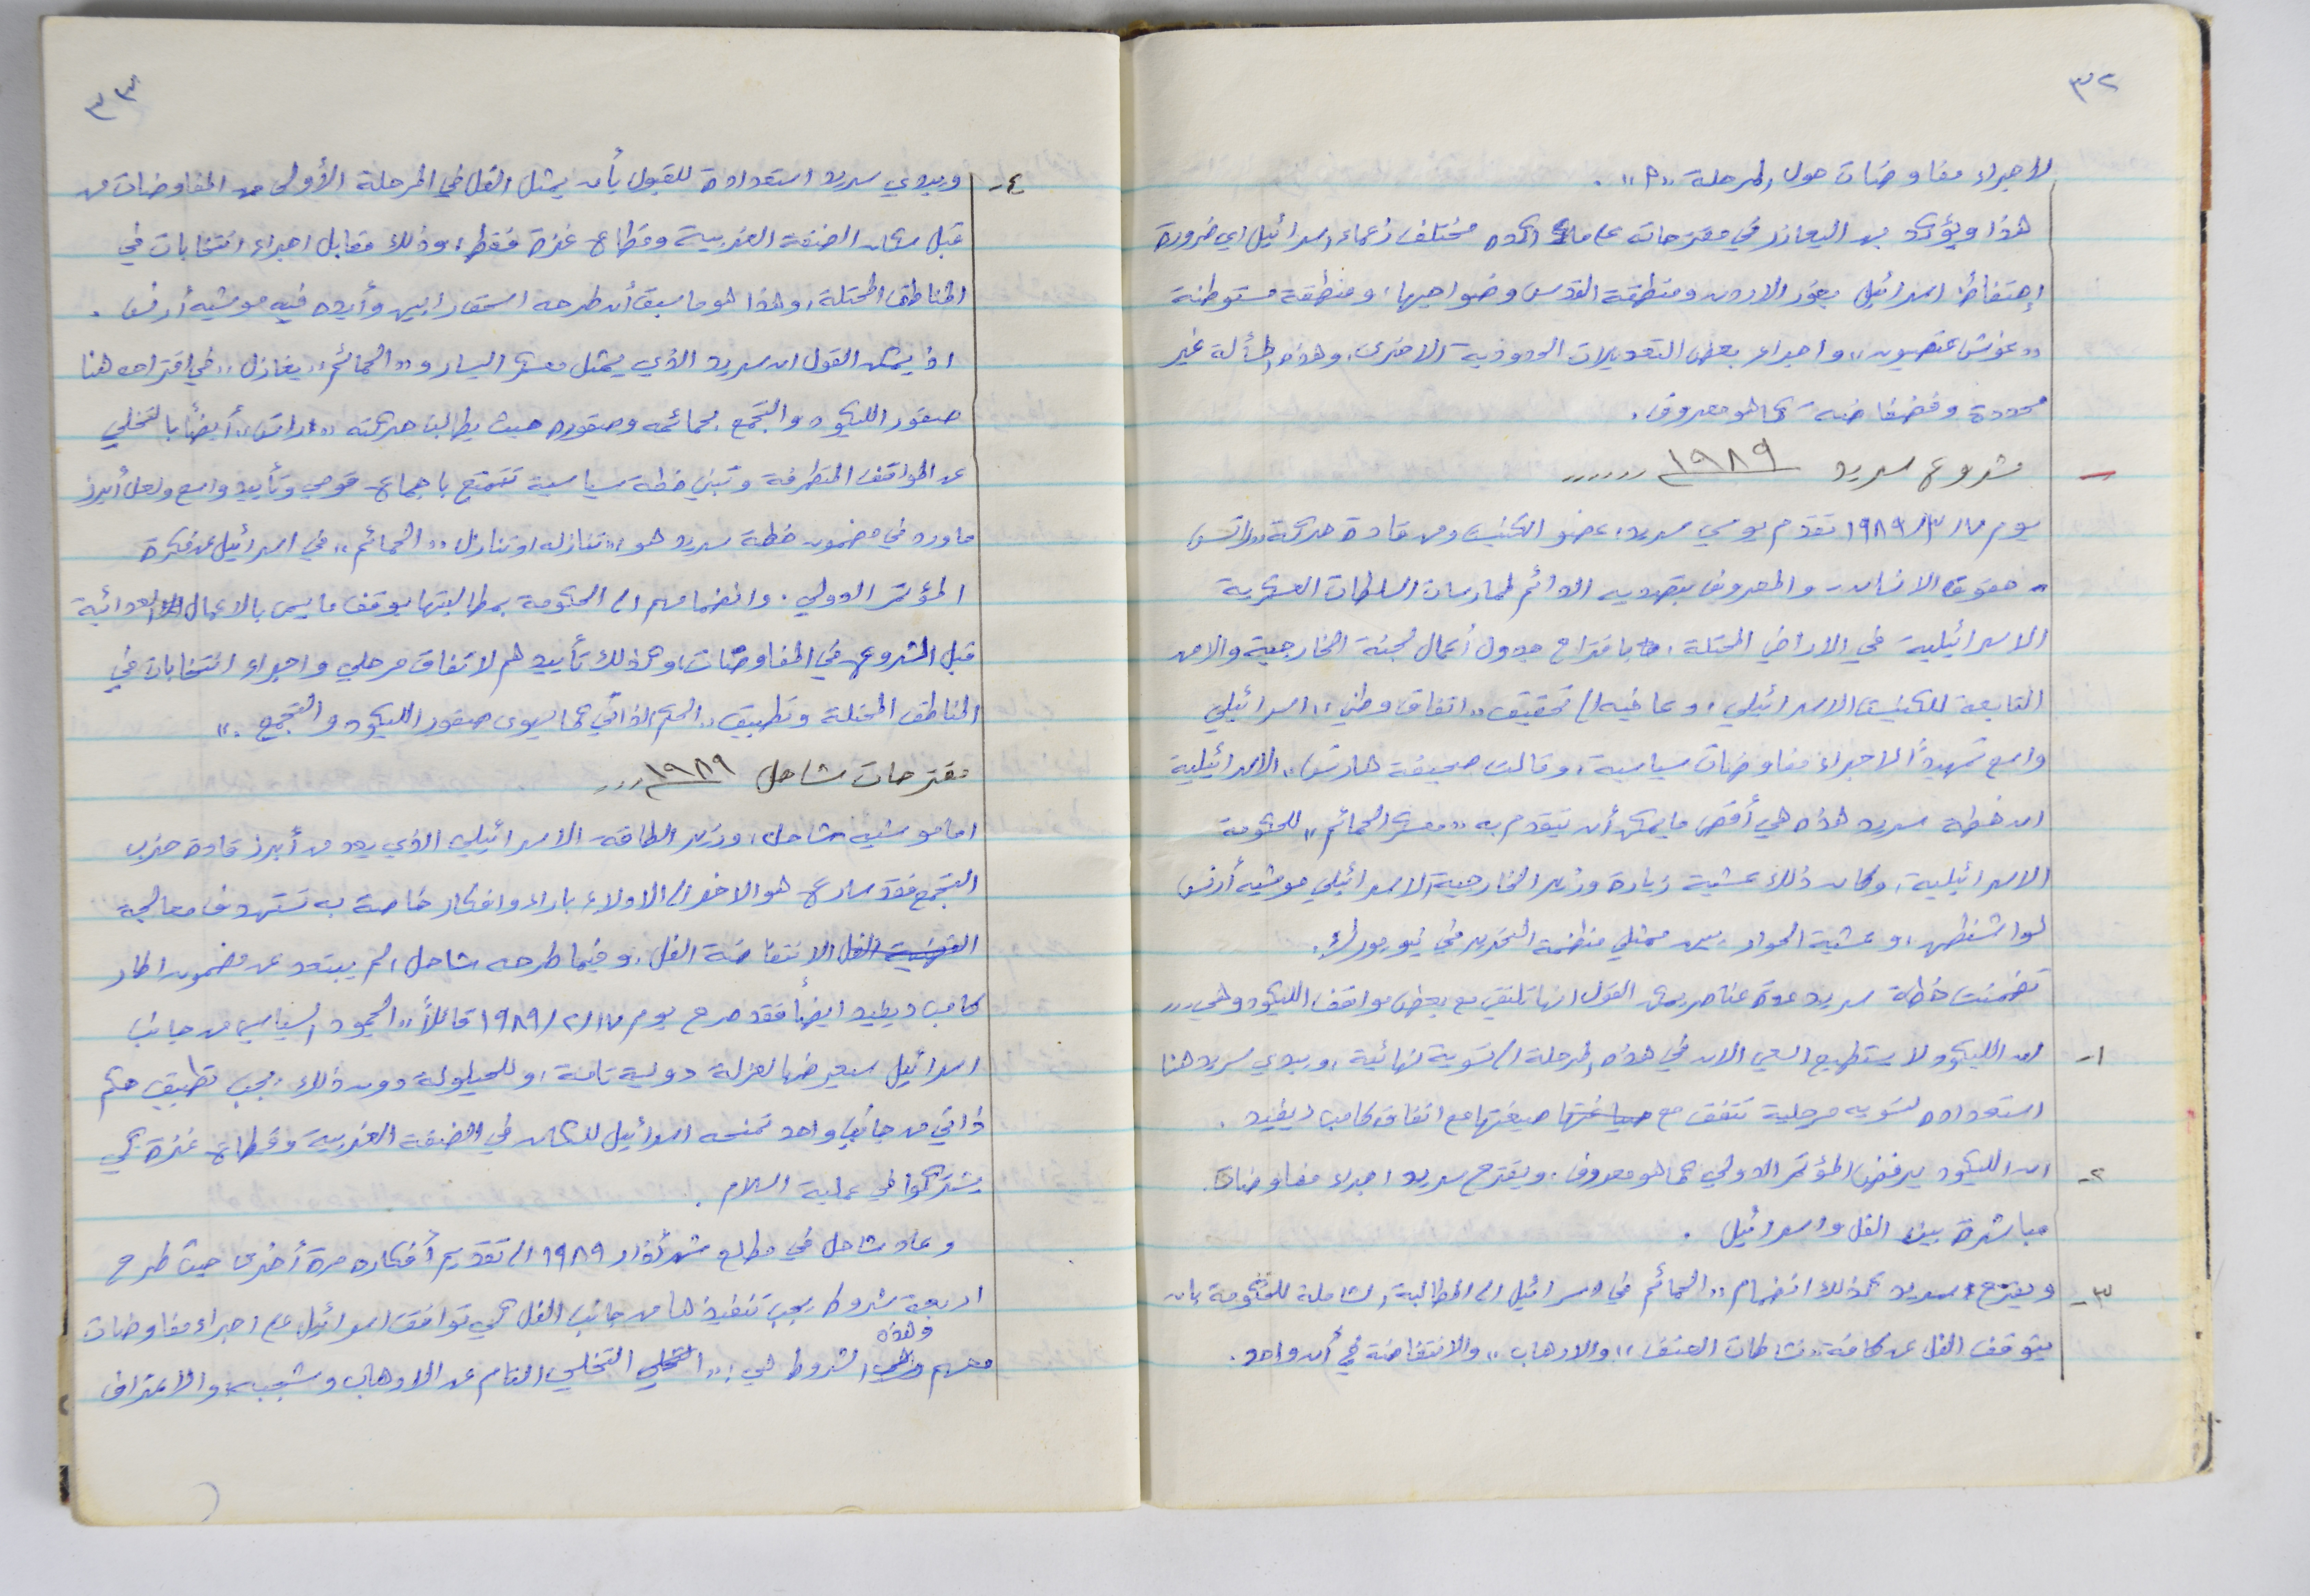 ٣٢
لاجراء مفاوضات حول المرحلة "٢".
هذا ويؤكد بن اليعازر في مقترحاته على ما أكده مختلف زعماء اسرائيل اي ضرورة
إحتفاظ اسرائيل بغور الاردن ومنطقة القدس وضواحيها، ومنطقة مستوطنة
"غوش عتصيون" واجراء بعض التعديلات الحدودية الاخرى، وهذه المسألة غير
محددة وفضفاضة - كما هو معروف.
- مشروع سريد ١٩٨٩
يوم ١٩٨٩/٣/١٧ تقدم يوسي سريد، عضو الكنيست ومن قادة حركة "راتس
- حقوق الانسان - والمعروف بتصديه الدائم لممارسات السلطات العسكرية
الاسرائيلية في الاراضي المحتلة، باقتراح جدول أعمال لجنة الخارجية والامن
التابعة للكنيست الاسرائيلي، دعا فيه الى تحقيق "اتفاق وطني" اسرائيلي
واسع تمهيداً لاجراء مفاوضات سياسية، وقالت صحيفة هآرتس" الاسرائيلية
ان خطة سريد هذه هي أقصى ما يمكن أن يتقدم به "معسكر الحمائم" للحكومة
الاسرائيلية، وكان ذلك عشية زيارة وزير الخارجية الاسرائيلي موشيه أرنس
لواشنطن، وعشية الحوار بين ممثلي منظمة التحرير في نيويورك.
تضمنت خطة سريد عدة عناصر يمكن القول انها تلتقي مع بعض مواقف الليكود وهي
١- ان الليكود لا يستطيع السعي الان في هذه المرحلة الى تسوية نهائية، ويبدي سريد هنا
استعداده لتسويه مرحلية تتفق مع صياغتها صيغتها مع اتفاق كامب ديفيد.
٢- ان الليكود يرفض المؤتمر الدولي كما هو معروف. ويقترح سريد اجراء مفاوضات
مباشرة بين الفل واسرائيل.
٣- ويقترح سريد كذلك انضمام "الحمائم في اسرائيل الى المطالبة الشاملة للحكومة بان
يتوقف الفل عن كافة "نشاطات العنف" والارهاب" والانتفاضة في أن واحد.
٣٣
٤- ويبدي سريد استعداده للقبول بأن يمثل الفل في المرحلة الأولى من المفاوضات من
قبل سكان الضفة الغربية وقطاع غزة فقط، وذلك مقابل اجراء انتخابات في
المناطق المحتلة، وهذا هو ما سبق أن طرحه اسحق رابين وأيده فيه موشيه أرنس.
اذ يمكن القول ان سريد الذي يمثل معسكر اليسار و "الحمائم" يغازل" في اقتراحه هنا
صقور الليكود والتجمع بحمائمه وصقوره حيث يطالب حركته "راتس" أيضاً بالتخلي
عن المواقف المتطرفة وتبني خطة سياسية تتمتع باجماع قومي وتأييد واسع ولعل أبرز
ما ورد في مضمون خطة سريد هو "تنازله او تنازل "الحمائم" في اسرائيل عن فكرة
المؤتمر الدولي. وانضمامهم الى الحكومة بمطالبتها بوقف ما يسمى بالاعمال العدائية
قبل الشروع في المفاوضات، وكذلك تأييدهم لاتفاق مرحلي واجراء انتخابات في
المناطق المحتلة وتطبيق "الحكم الذاتي كما يهوى صقور الليكود والتجمع".
مقترحات شاحل ١٩٨٩
اما موشيه شاحل، وزير الطاقة الاسرائيلي الذي يعد من أبرز قادة حزب
التجمع فقد سارع هو الاخر الى الادلاء باراء وافكار خاصة به تستهدف معالجة
القضية الفل الانتفاضة الفل، وفيما طرحه شاحل، لم يبتعد عن مضمون اطار
كامب ديفيد ايضاً فقد صرح يوم ١٩٨٩/٢/١٧ قائلاً "الجمود السياسي من جانب
اسرائيل سيعرضها لعزلة دولية تامة، وللحيلولة دون ذلك، يجب تطبيق حكم
ذاتي من جانب واحد تمنحه اسرائيل للسكان في الضفة الغربية وقطاع غزة كي
يشتركوا في عملية السلام.
وعاد شاحل في مطلع شهر آذار ١٩٨٩ الى تقديم أفكاره مرة أخرى حيث طرح
اربعة شروط يجب تنفيذها من جانب الفل كي توافق اسرائيل على اجراء مفاوضات
معهم وهذه الشروط هي: "التخلي التخلي التام عن الارهاب وشجبه، والاعتراف